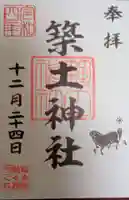 奉拝
築土神社
十二月二十四日